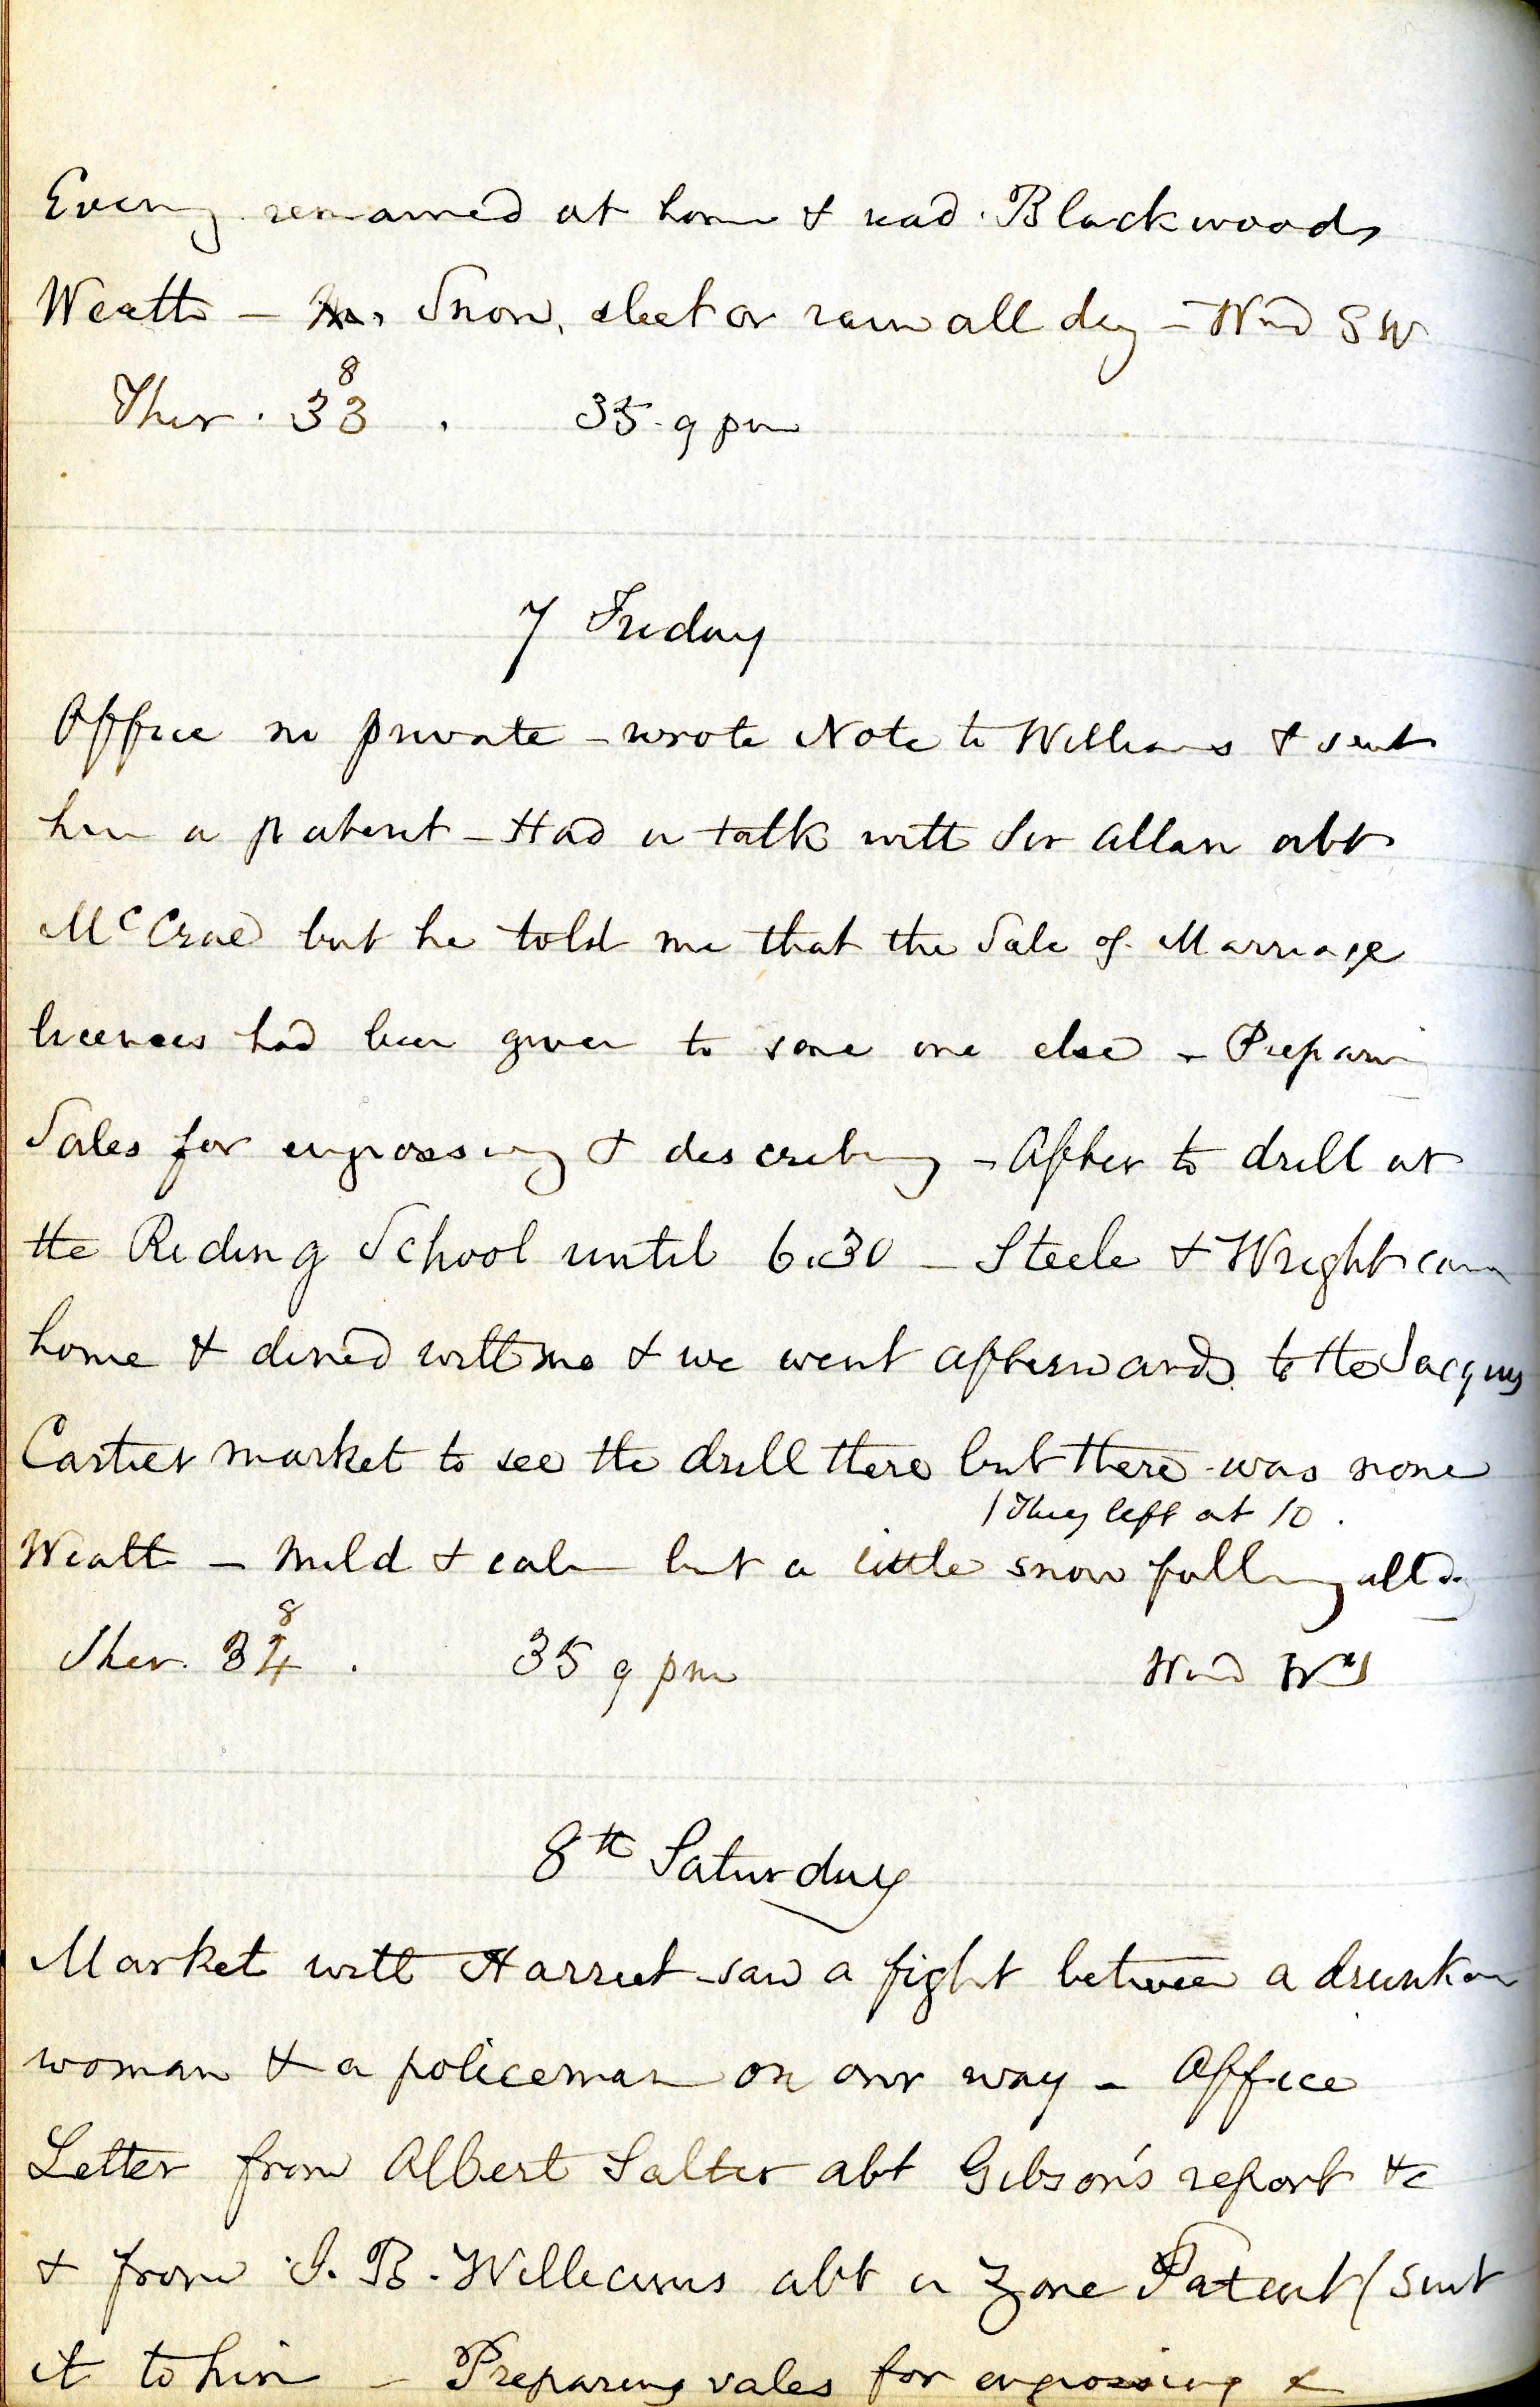 Evening remained at home & read Blackwoods
Weath – Snow, sleet or rain all day – Wind SW
8
Ther. 33 . 35. 9 pm
7 Friday
Office no private – wrote Note to Williams & sent
him a patent – Had a talk with Sir Allan abt
McCrae but he told me that the Sale of Marriage
licences had been given to some one else – Preparing
Sales for engrossing & describing – After to drill at
the Riding School until 6.30 – Steele & Wright came
home & dined with me & we went afterwards to the Jacques
Cartier market to see the drill there but there was none
/ They left at 10 .
Weath – Mild & calm but a little snow falling all day
8
Ther. 34 . 35 9 pm Wind
8th Saturday
Market with Harriet – saw a fight between a drunken
woman & a policeman on our way – Office
Letter from Albert Salter abt Gibson's report &c
& from J. B. Williams abt a zone Patent (sent
it to him – Preparing sales for engrossing &